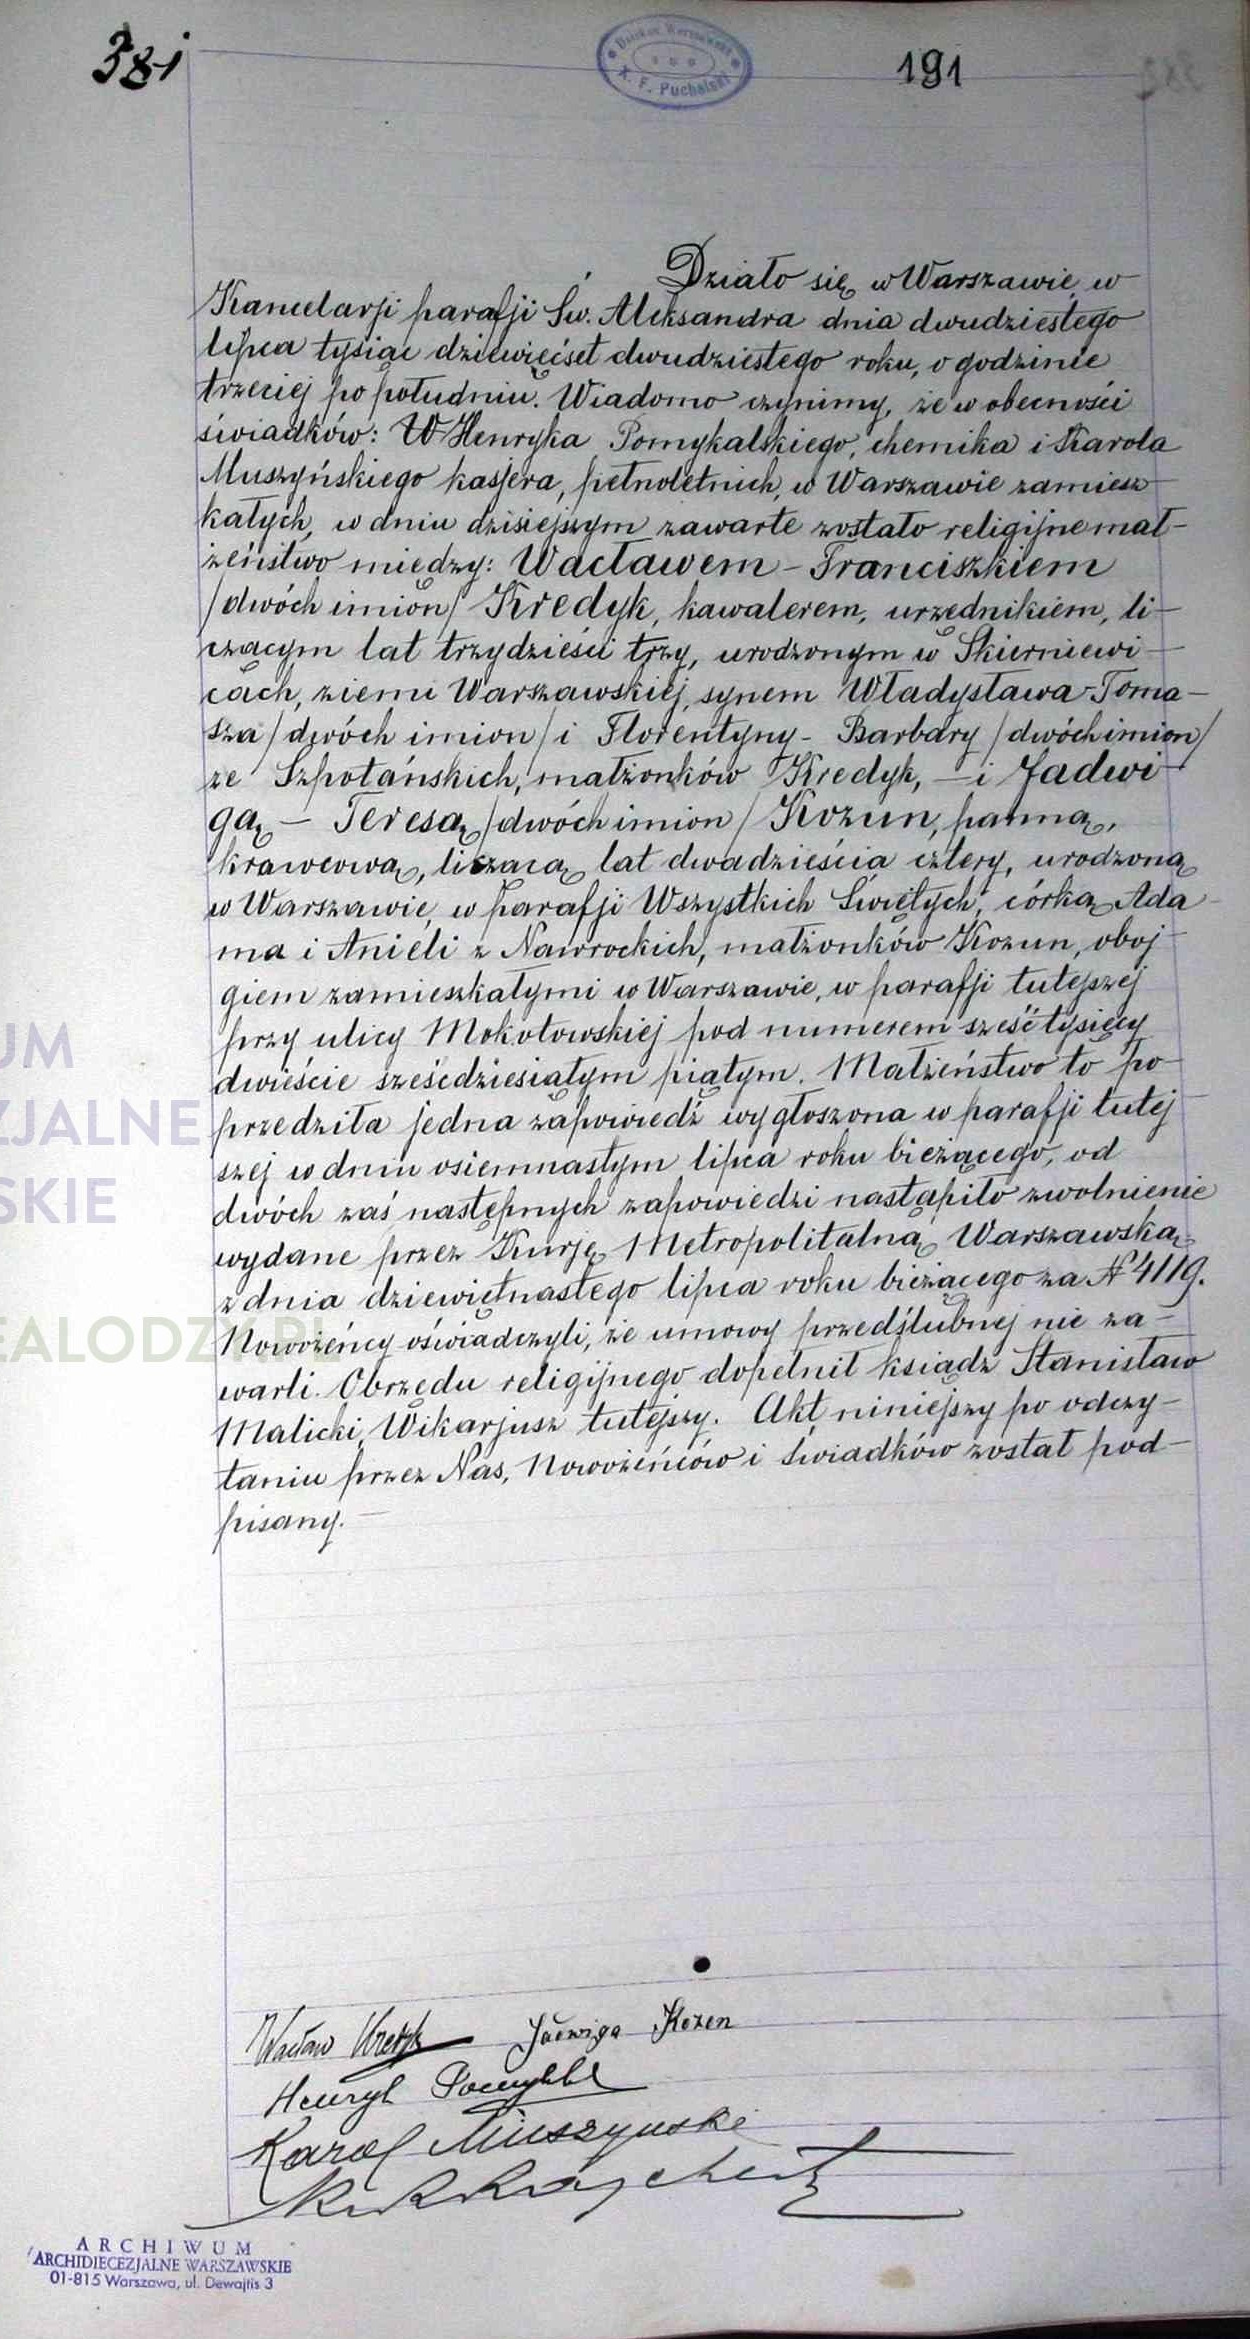 381
Dziekan Warszawski
X. F. Puchalski
191
Działo się w Warszawie, w
Kancelarji parafji Św. Aleksandra dnia dwudziestego
lipca tysiąc dziewięćset dwudziestego roku, o godzinie
trzeciej po południu. Wiadomo czynimy, że w obecności
świadków: W Henryka Pomykalskiego, chemika i Karola
Muszyńskiego kasjera, pełnoletnich, w Warszawie zamiesz-
kałych, w dniu dzisiejszym zawarte zostało religijne mał-
żeństwo między: Wacławem - Franciszkiem
/dwóch imion/ Kredyk, kawalerem, urzędnikiem, li-
czącym lat trzydzieści trzy, urodzonym w Skierniewi-
cach, ziemi Warszawskiej, synem Władysława-Toma-
sza /dwóch imion/ i Florentyny - Barbary /dwóch imion/
ze Szpotańskich, małżonków Kredyk, - i Jadwi-
gą - Teresą /dwóch imion/ Kozun, panną,
krawcową, liczącą lat dwadzieścia cztery, urodzoną
w Warszawie, w parafji Wszystkich Świętych, córką Ada-
ma i Anieli z Nawrockich, małżonków Kozun, oboj-
giem zamieszkałymi w Warszawie, w parafji tutejszej
przy ulicy Mokotowskiej pod numerem sześć tysięcy
dwieście sześćdziesiątym piątym. Małżeństwo to po-
przedziła jedna zapowiedź wygłoszona w parafji tutej-
szej w dniu osiemnastym lipca roku bieżącego, od
dwóch zaś następnych zapowiedzi nastąpiło zwolnienie
wydane przez Kurję Metropolitalną Warszawską
z dnia dziewiętnastego lipca roku bieżącego za № 4119.
Nowożeńcy oświadczyli, że umowy przedślubnej nie za-
warli. Obrzędu religijnego dopełnił ksiądz Stanisław
Malicki, Wikarjusz tutejszy. Akt niniejszy po odczy-
taniu przez Nas, Nowożeńców i świadków został pod-
pisany. -
UM
ZJALNE
SKIE
EALODZY.PL
Wacław Kredyk Jadwiga Kozen
Henryk
Karol Muszynski
ARCHIWUM
ARCHIDIECEZJALNE WARSZAWSKIE
01-815 Warszawa, ul. Dewajtis 3